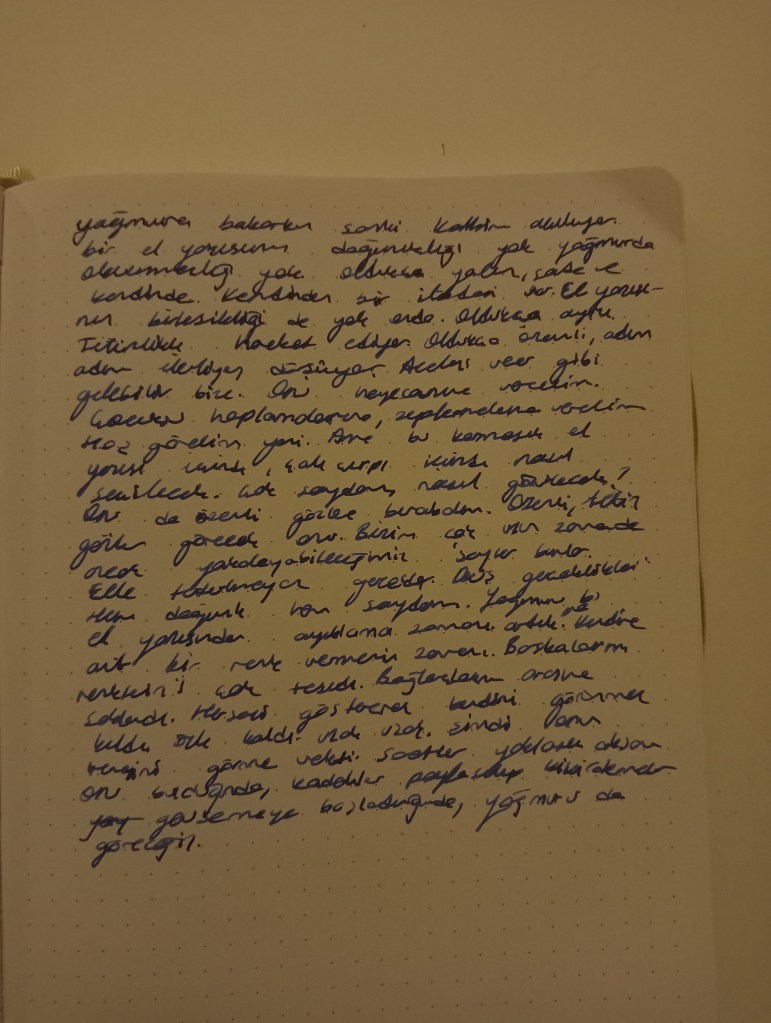 yağmura bakarken sanki kalbim
bir el yazısının dağınıklığı yok yağmurda
yok. Oldukça yalın, sade ve
kendinde. Kendinden bir itadesi var. El yazısı-
nın birleşikliği de yok onda. Oldukça ayrı.
Titizlikle hareket ediyor. Oldukça özenli, adım
adım ilerliyor, düşüyor. Acelesi var gibi
gelebilir bize. Onu heyecanına verelim.
Çocuksu hoplamalarına, zıplamalarına verelim
Hoş görelim yani. Ama bu karmaşık el
yazısı içinde, çok çarpı içinde nasıl
seçilecek. Çok saydam, nasıl görülecek?
Onu da özenli gözlere bırakalım. Özenli, titiz
gözler görecek onu. Bizim çok uzun zamanda
ancak yakalayabileceğimiz şeyler bunlar.
Elle tutulmayan gerçekler. Düş gerçeklikleri
Hem dağınık hem saydam. Yağmuru bu
el yazısından ayıklama zamanı artık. Kendine
ait bir renk vermenin zamanı. Başkalarının
renkleri çok taşıdı. Bağlaçların arasına
saklandı. Herşeyi göstererek kendini görünmez
kıldı. Öyle kaldı. Uzak uzak. Şimdi onun
rengini görme vakti. Saatler yaklaşık akşam
on buçuğunda, kadehler paylaşılıp
gevşemeye başladığında, yağmuru da
göreceğiz.